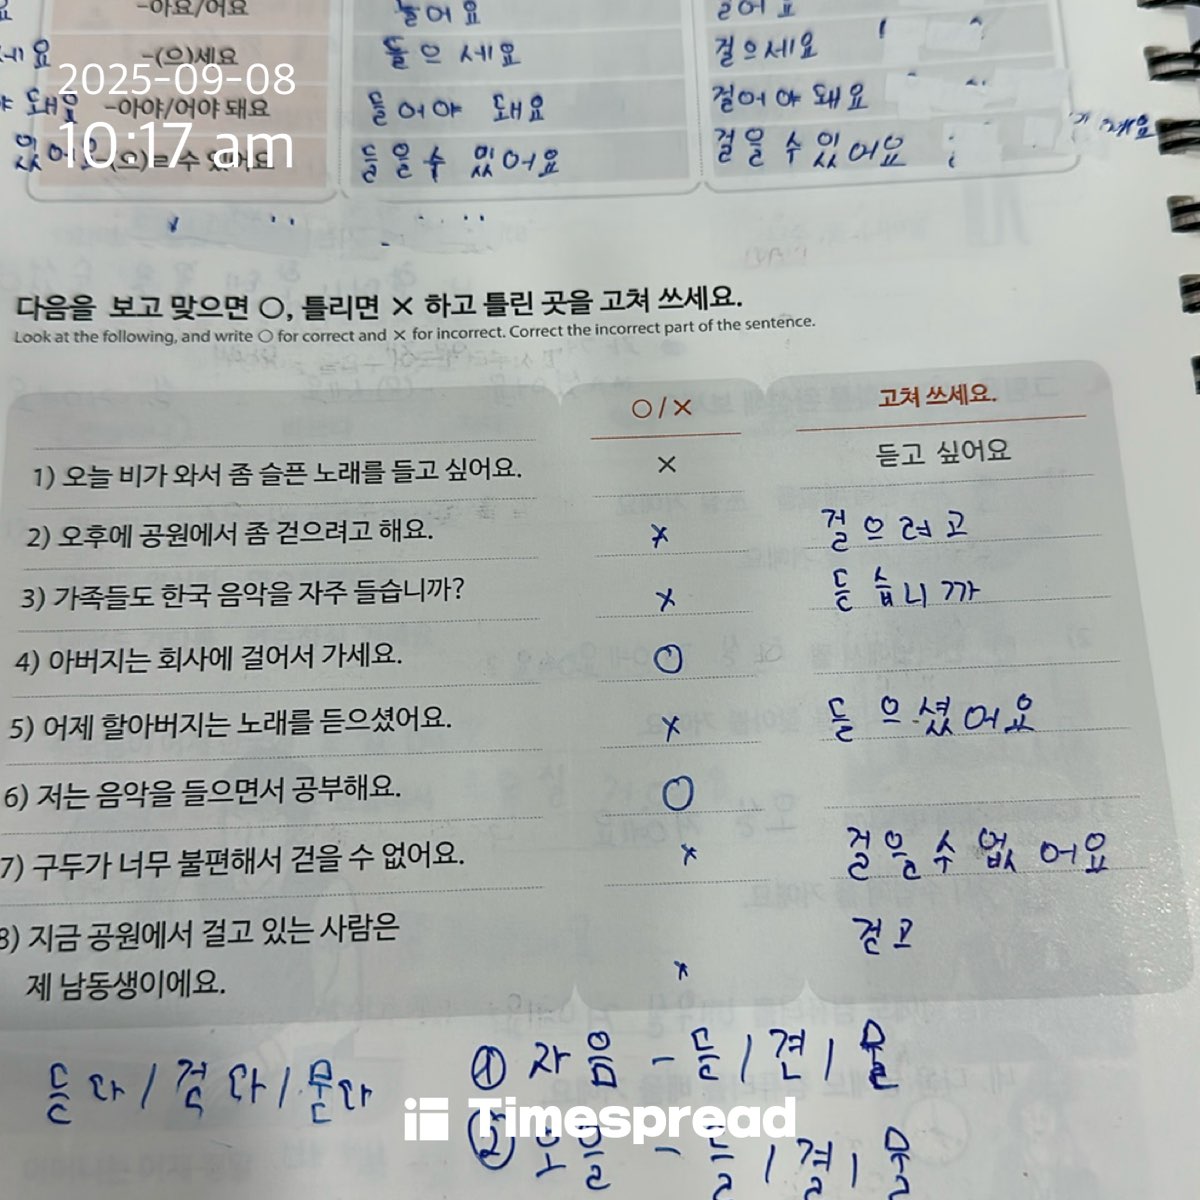 -아요/어요 들어요 걸어요
세요 -(으)세요 들으세요 걸으세요
2025-09-08
돼요 -아야/어야 돼요 들어야 돼요 걸어야 돼요
10:17 am
있어요 (으)ㄹ 수 있어요 들을 수 있어요 걸을 수 있어요
다음을 보고 맞으면 ○, 틀리면 × 하고 틀린 곳을 고쳐 쓰세요.
Look at the following, and write ○ for correct and × for incorrect. Correct the incorrect part of the sentence.
○/× 고쳐 쓰세요.
1) 오늘 비가 와서 좀 슬픈 노래를 들고 싶어요. × 듣고 싶어요
2) 오후에 공원에서 좀 걷으려고 해요. × 걸으려고
3) 가족들도 한국 음악을 자주 들습니까? × 듣습니까
4) 아버지는 회사에 걸어서 가세요. ○
5) 어제 할아버지는 노래를 듣으셨어요. × 들으셨어요
6) 저는 음악을 들으면서 공부해요. ○
7) 구두가 너무 불편해서 걷을 수 없어요. × 걸을 수 없어요
8) 지금 공원에서 걸고 있는 사람은 걷고
제 남동생이에요. ×
① 자음 -
듣다 /
Timespread
② 모음 - 들 / 걸 / 물